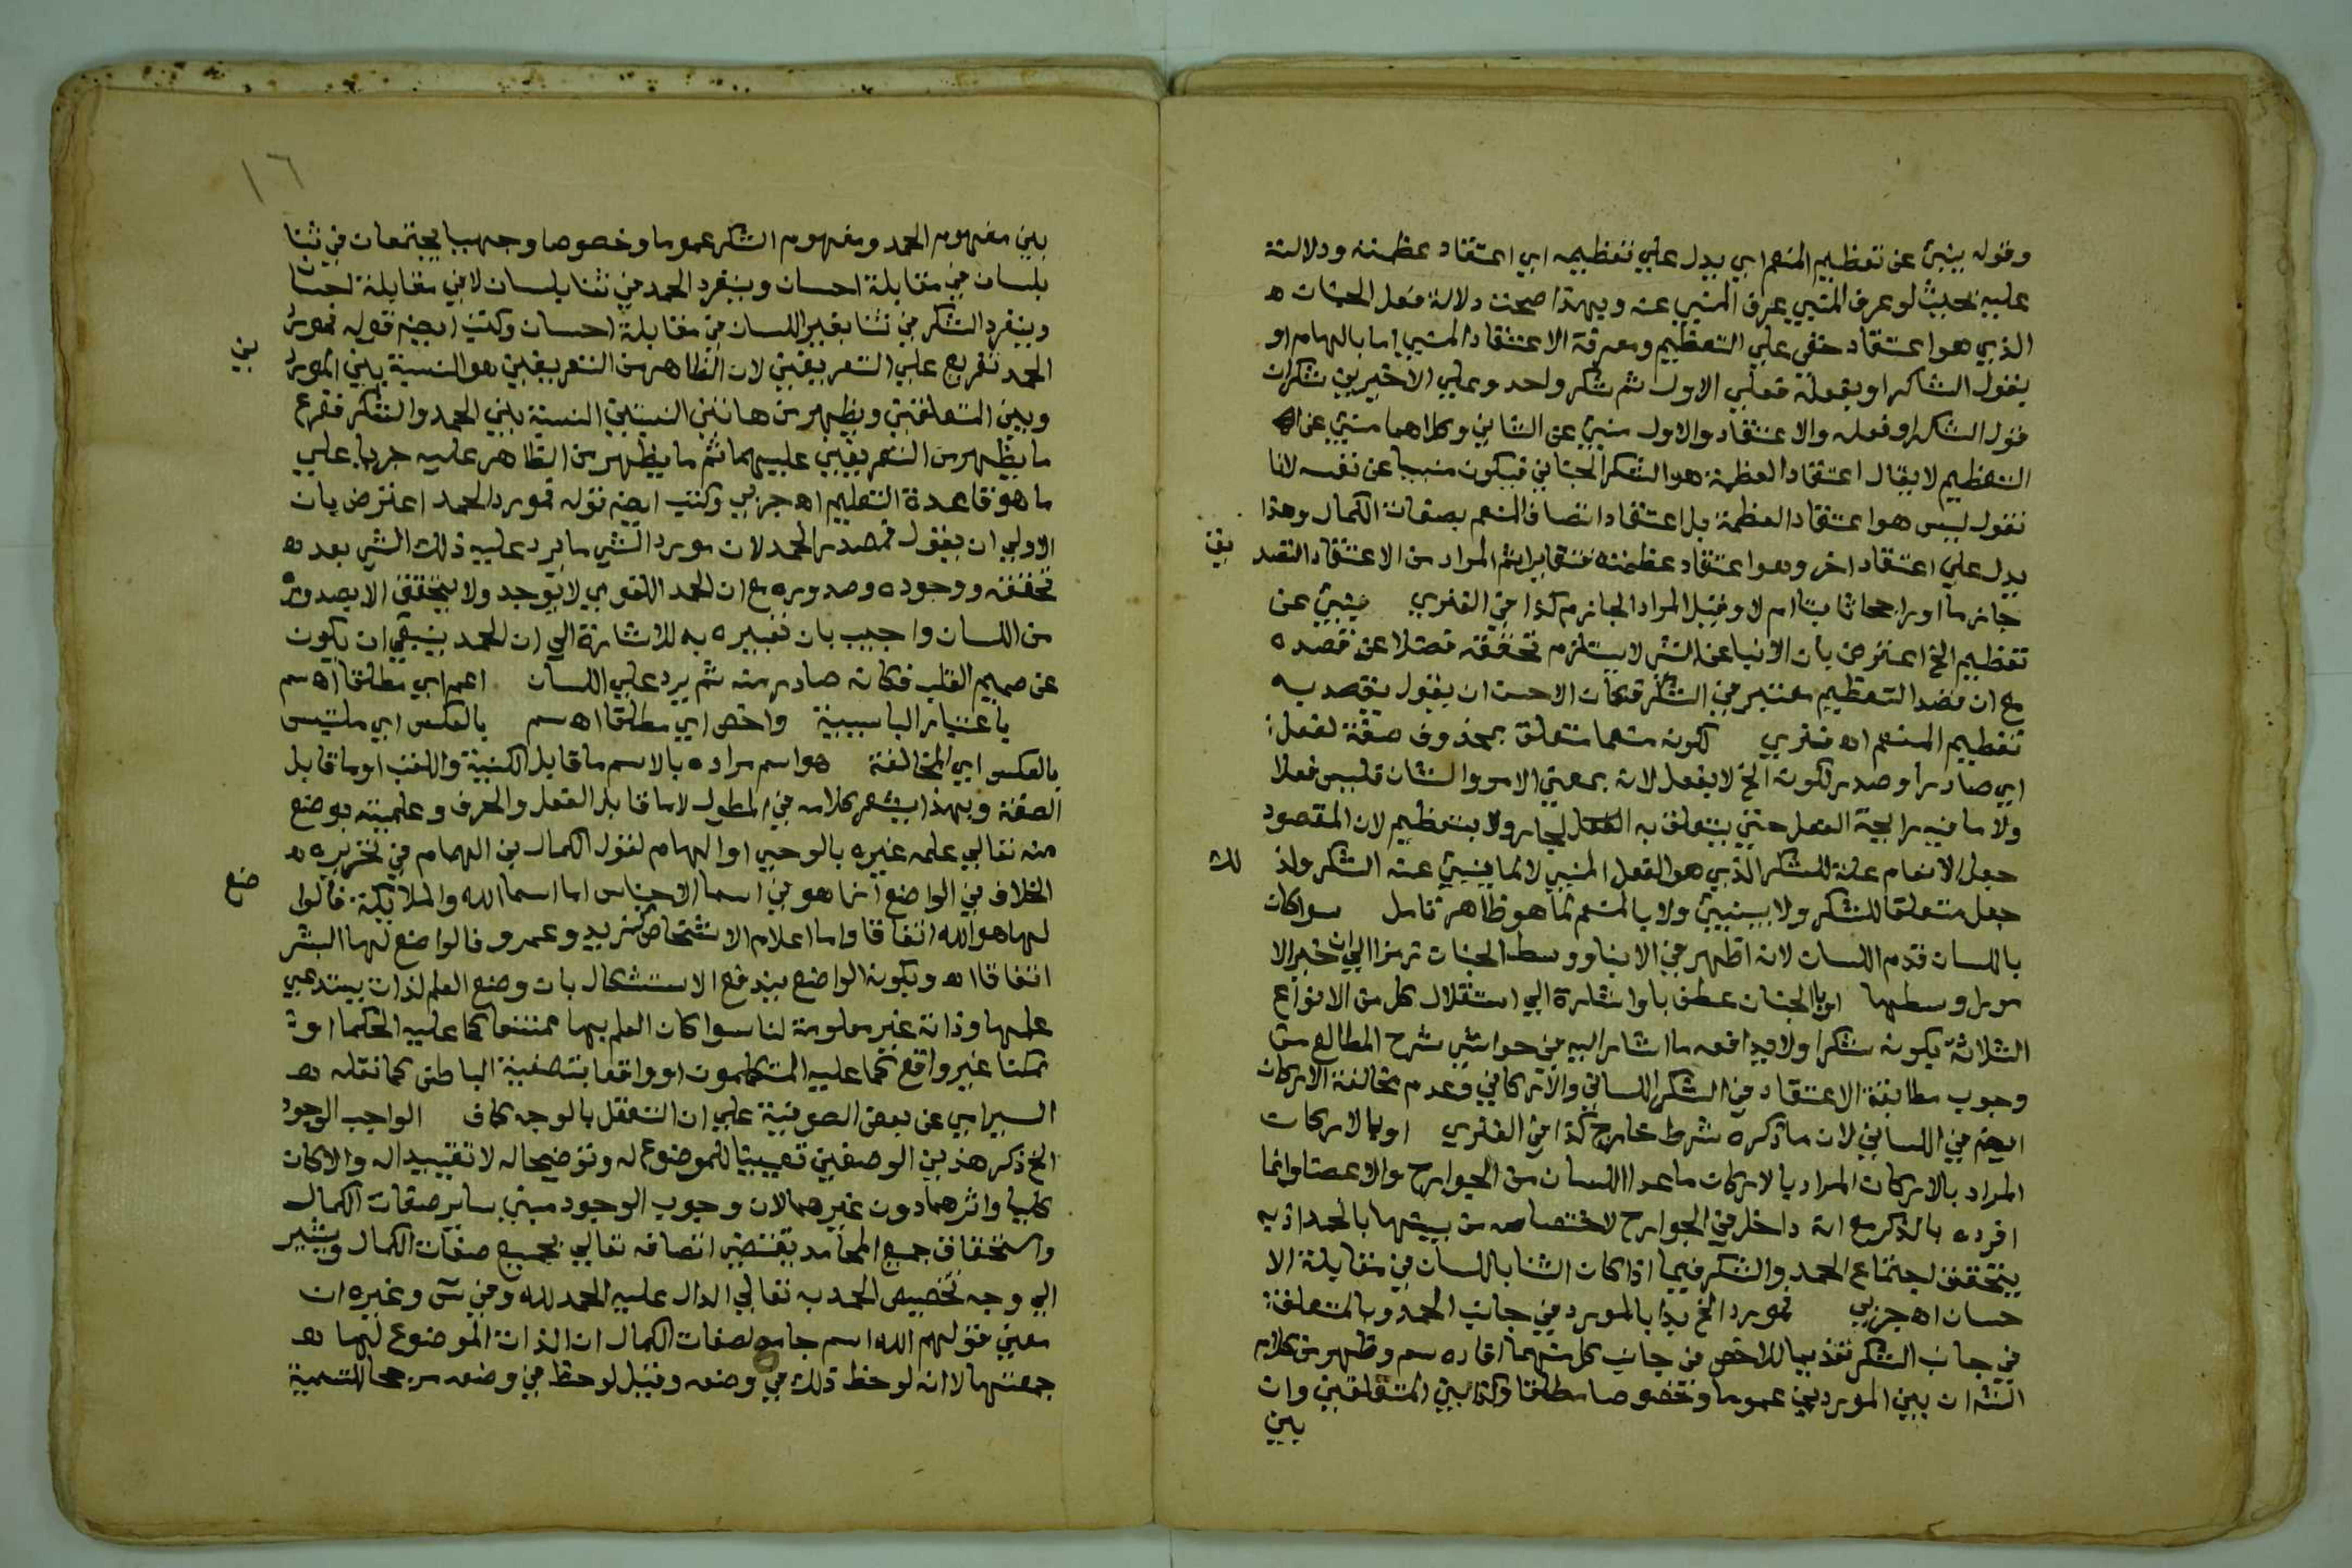 وقوله ينبئ عن تعظيم المنعم اي يدل علي تعظيمه اي اعتقاد عظمته ودلالته
عليه بحيث لو عرف المنبي عرف المنبي عنه وبهذا صحت دلالة فعل الجنان ه
الذي هو اعتقاد خفي علي التعظيم ومعرفة الاعتقاد المنبي اما بالهام او
بقول الشاكر او بفعله فعلي الاول ثم شكر واحد وعلي الاخيرين شكران
قول الشكر او فعله والاعتقاد والاول منبئ عن الثاني وكلاهما منبئ عن
التعظيم لا يقال اعتقاد العظمة هو الشكر الجناني فيكون منبيا عن نفسه لانا
نقول ليس هو اعتقاد العظمة بل اعتقاد اتصاف المنعم بصفات الكمال وهذا
يدل علي اعتقاد اخر وهو اعتقاد عظمته فتغايرا ثم المراد من الاعتقاد التصد
يق
جازما او راجحا ثابتا ام لا وقيل المراد الجازم كذا في الفنري ينبئ عن
تعظيم الخ اعترض بان الانبا عن الشي لا يستلزم تحققه فضلا عن قصده
مع ان قصد التعظيم معتبر في الشكر فكان الاحسن ان يقول يقصد به
تعظيم المنعم اه فنري لكونه منعما متعلق بمحذوف صفة لفعل
اي صادر او صدر لكونه الخ لا بفعل لانه بمعني الامر والشان فليس فعلا
ولا ما فيه رايحة الفعل حتي يتعلق به الجار ولا بتعظيم لان المقصود
جعل الانعام علة للشكر الذي هو الفعل المنبي لا لما ينبئ عنه الشكر ولذ
لك
جعل متعلقا للشكر ولا بينبئ ولا بالمنعم لما هو ظاهر تامل سوا كان
باللسان قدم اللسان لانه اظهر في الانبا ووسط الجنان رمزا الي ان خير الا
مور اوسطها او بالجنان عطف باو اشارة الي استقلال كل من الانواع
الثلاثة بكونه شكرا ولا يدافعه ما اشار اليه في حواشي شرح المطالع من
وجوب مطابقة الاعتقاد في الشكر اللساني والاركاني وعدم مخالفة الاركان
ايضم في اللساني لان ما ذكره شرط خارج كذا في الفنري او بالاركان
المراد بالاركان المراد بالاركان ما عدا اللسان من الجوارح والاعضا وانما
افرده بالذكر مع انه داخل في الجوارح لاختصاصه من بينها بالحمد اذ به
يتحقق اجتماع الحمد والشكر فيما اذا كان الثنا باللسان في مقابلة الا
حسان اه جربي فمورد الخ بدا بالمورد في جانب الحمد وبالمتعلق
في جانب الشكر تقديما للاخص في جانب كل منهما افاده سم وظهر من كلام
الش ان بين الموردين عموما وخصوصا مطلقا وكذا بين المتعلقين وان
بين
١٦
بين مفهوم الحمد ومفهوم الشكر عموما وخصوصا وجهيا يجتمعان في ثنا
بلسان في مقابلة احسان وينفرد الحمد في ثنا بلسان لا في مقابلة احسان
وينفرد الشكر في ثنا بغير اللسان في مقابلة احسان وكتب ايضم قوله فمورد
الحمد تفريع علي التعريفين لان الظاهر من التعريفين هو النسبة بين المورد
ين
وبين المتعلقين ويظهر من هاتين النسبتين النسبة بين الحمد والشكر ففرع
ما يظهر من التعريفين عليهما ثم ما يظهر من الظاهر عليه جريا علي
ما هو قاعدة التعليم اه جربي وكتب ايضم قوله فمورد الحمد اعترض بان
الاولي ان يقول فمصدر الحمد لان مورد الشي ما يرد عليه ذلك الشي بعد ه
تحققه ووجوده وصدوره مع ان الحمد اللغوي لا يوجد ولا يتحقق الا بصدوره
من اللسان واجيب بان تعبيره به للاشارة الي ان الحمد ينبغي ان يكون
عن صميم القلب فكانه صادر منه ثم يرد علي اللسان اعم اي مطلقا اه سم
باعتبار البا سببية واخص اي مطلقا اه سم بالعكس اي ملتبس
بالعكس اي المخالفة هو اسم مراده بالاسم ما قابل الكنية واللقب او ما قابل
الصفة وبهذا يشعر كلامه في المطول لا ما قابل الفعل والحرف وعلميته بوضع
منه تعالي علمه غيره بالوحي او الهام لقول الكمال بن الهمام في تحريره ه
الخلاف في الواضع انما هو في اسما الاجناس اما اسما الله والملايكة فالوا
ضع
لها هو الله اتفاقا واما اعلام الاشخاص كزيد وعمرو فالواضع لها البشر
اتفاقا اه وبكونه الواضع يندفع الاستشكال بان وضع العلم لذات يستدعي
علمها وذاته غير معلومة لنا سوا كان العلم بها ممتنعا كما عليه الحكما او
ممكنا غير واقع كما عليه المتكلمون او واقعا بتصفية الباطن كما نقله ه
السيرامي عن بعض الصوفية علي ان التعقل بالوجه كاف الواجب الوجود
الخ ذكر هذين الوصفين تعيينا للموضوع له وتوضيحا له لا تقييدا له والا كان
كليا واثرهما دون غيرهما لان وجوب الوجود مبني ساير صفات الكمال
واستحقاق جميع المحامد يقتضي اتصافه تعالي بجميع صفات الكمال ويشير
الي وجه تخصيص الحمد به تعالي الدال عليه الحمد لله وفي س وغيره ان
معني قولهم الله اسم جامع لصفات الكمال ان الذات الموضوع لها ه
جمعتها لا انه لوحظ ذلك في وضعه وقيل لوحظ في وضعه مرجحا للتسمية